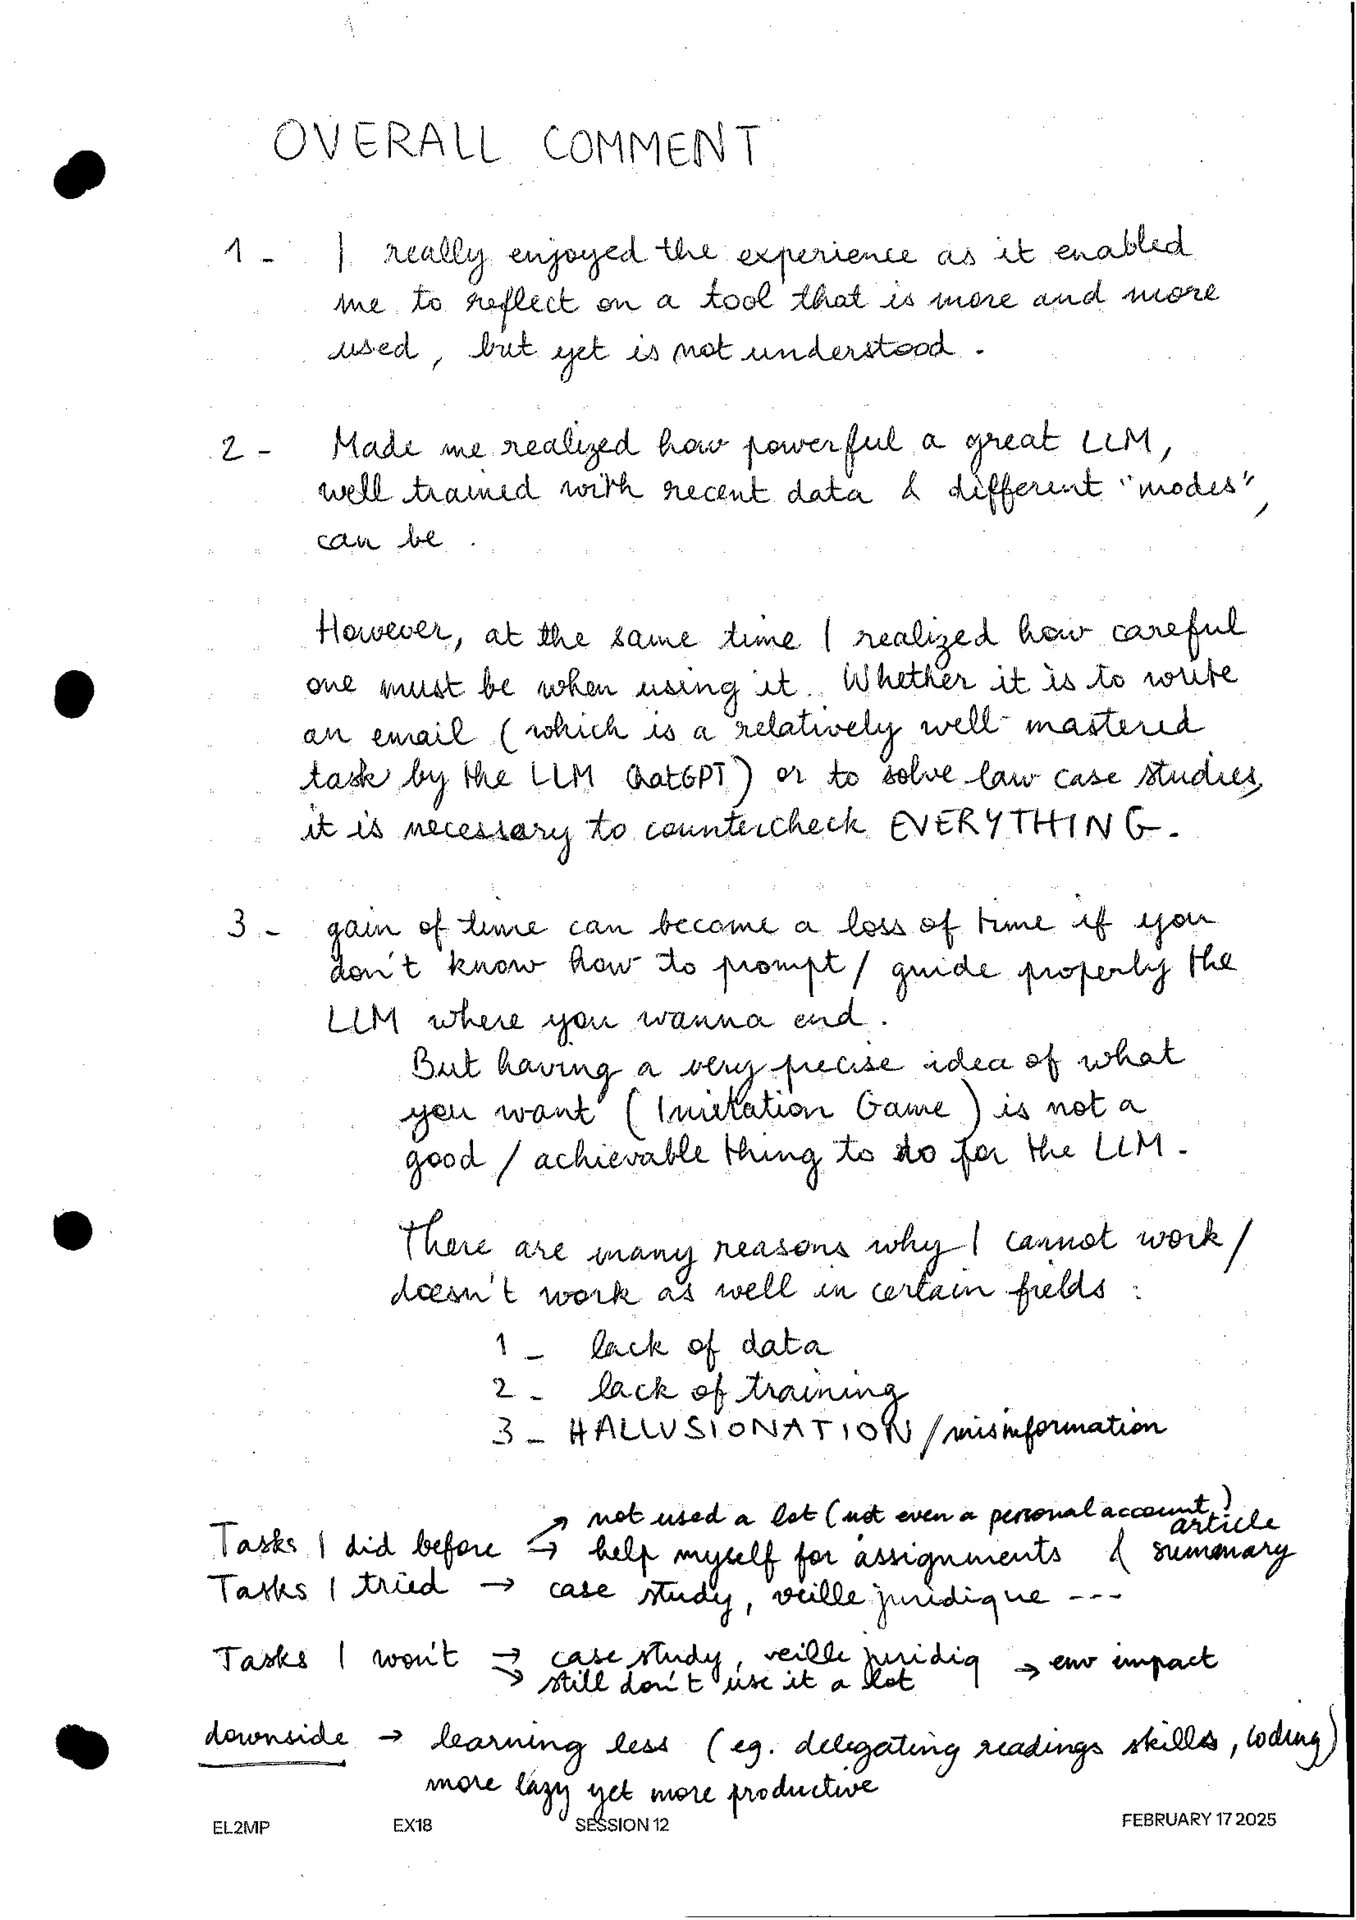 OVERALL COMMENT
1 - I really enjoyed the experience as it enabled
me to reflect on a tool that is more and more
used, but yet is not understood.
2 - Made me realized how powerful a great LLM,
well trained with recent data & different "modes",
can be.
However, at the same time I realized how careful
one must be when using it. Whether it is to write
an email (which is a relatively well mastered
task by the LLM ChatGPT) or to solve law case studies,
it is necessary to countercheck EVERYTHING.
3 - gain of time can become a loss of time if you
don't know how to prompt / guide properly the
LLM where you wanna end.
But having a very precise idea of what
you want (Imitation Game) is not a
good / achievable thing to do for the LLM.
There are many reasons why I cannot work /
doesn't work as well in certain fields :
1 - lack of data
2 - lack of training
3 - HALLUSIONATION / misinformation
Tasks I did before → not used a lot (not even a personal account)
→ help myself for assignments & article summary
Tasks I tried → case study, veille juridique ---
Tasks I won't → case study, veille juridiq → env impact
→ still don't use it a lot
downside → learning less (eg. delegating readings skills, coding)
more lazy yet more productive
EL2MP EX18 SESSION 12 FEBRUARY 17 2025